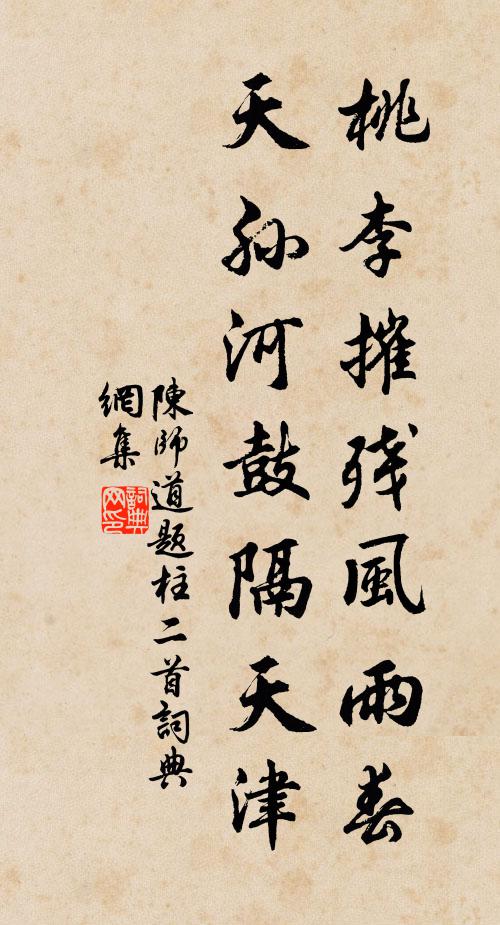 桃李摧残風雨春
天孫河鼓隔天津
陳師道題柱二首詞典
網集
詞典
网印